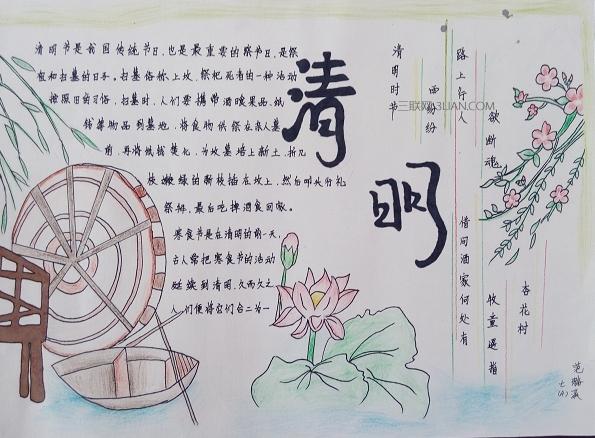 清明节是我国传统节日,也是最重要的祭节日,是祭
祖和扫墓的日子。扫墓俗称上坟,祭祀死者的一种活动
按照旧的习俗,扫墓时,人们要携带酒食果品,纸
钱等物品到墓地,将食物供祭在亲人墓
前,再将纸钱焚化,为坟墓培上新土,折几
枝嫩绿的新枝插在坟上,然后叩头行礼
祭拜,最后吃掉酒食回家。
寒食节是在清明的前一天,
古人常把寒食节的活动
延续到清明,久而久之
人们便将它们合二为一
清
明
清明时节
雨纷纷
路上行人
欲断魂
借问酒家何处有
牧童遥指
杏花村
三联网 3LIAN.COM
七(4)